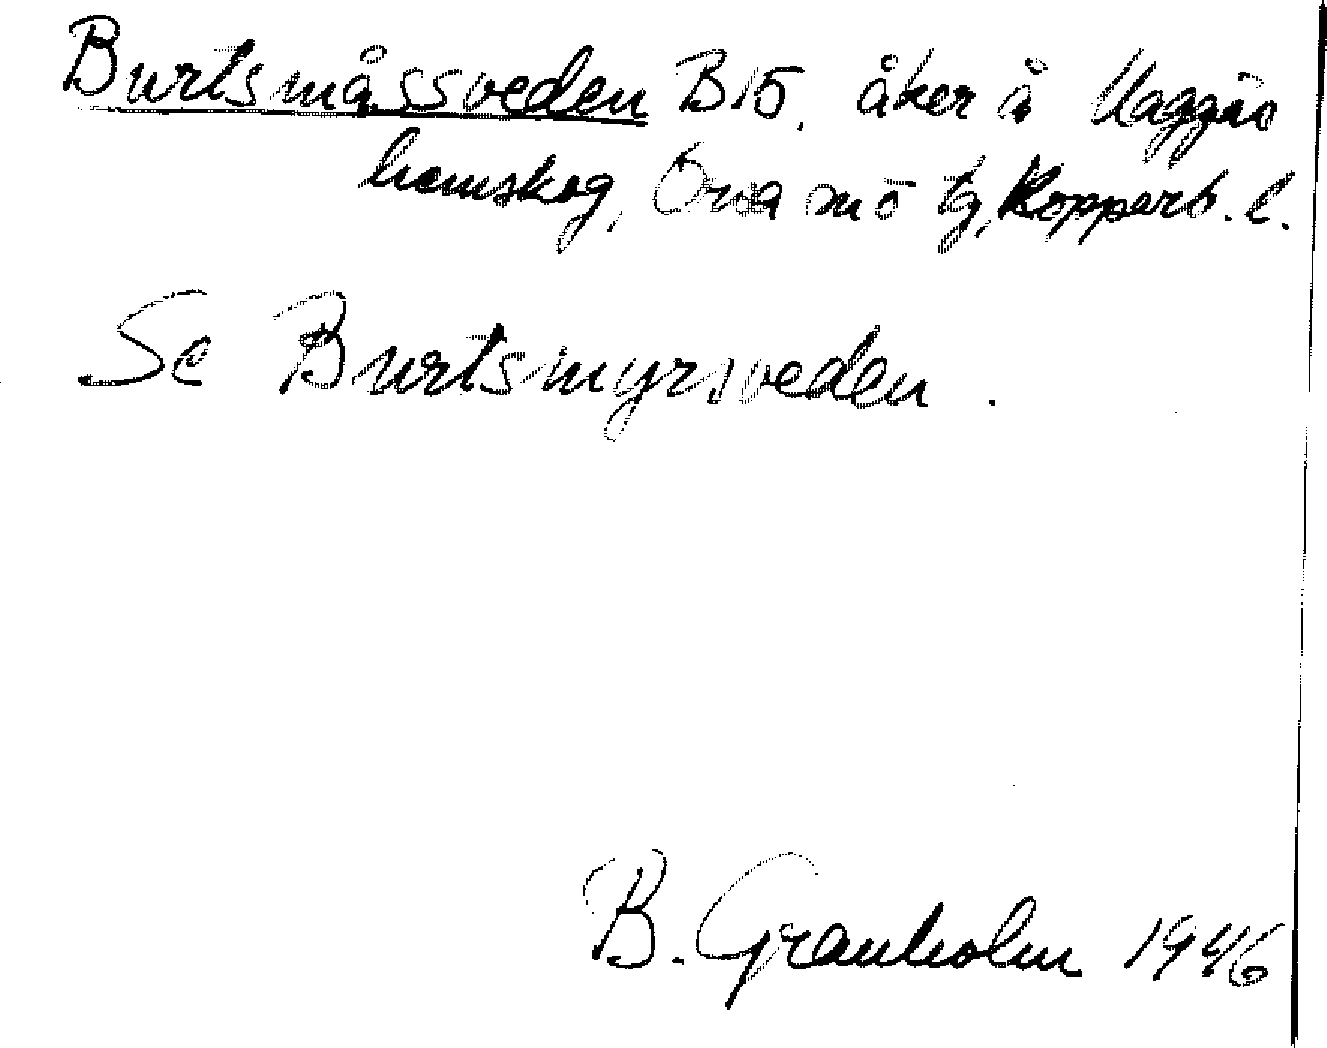 Burtsmåssveden B15. åker å Vaggås
hemskog, Orsa snö tg, Kopparb. l.
Se Burtsmyrsveden.
B. Granholm 1946